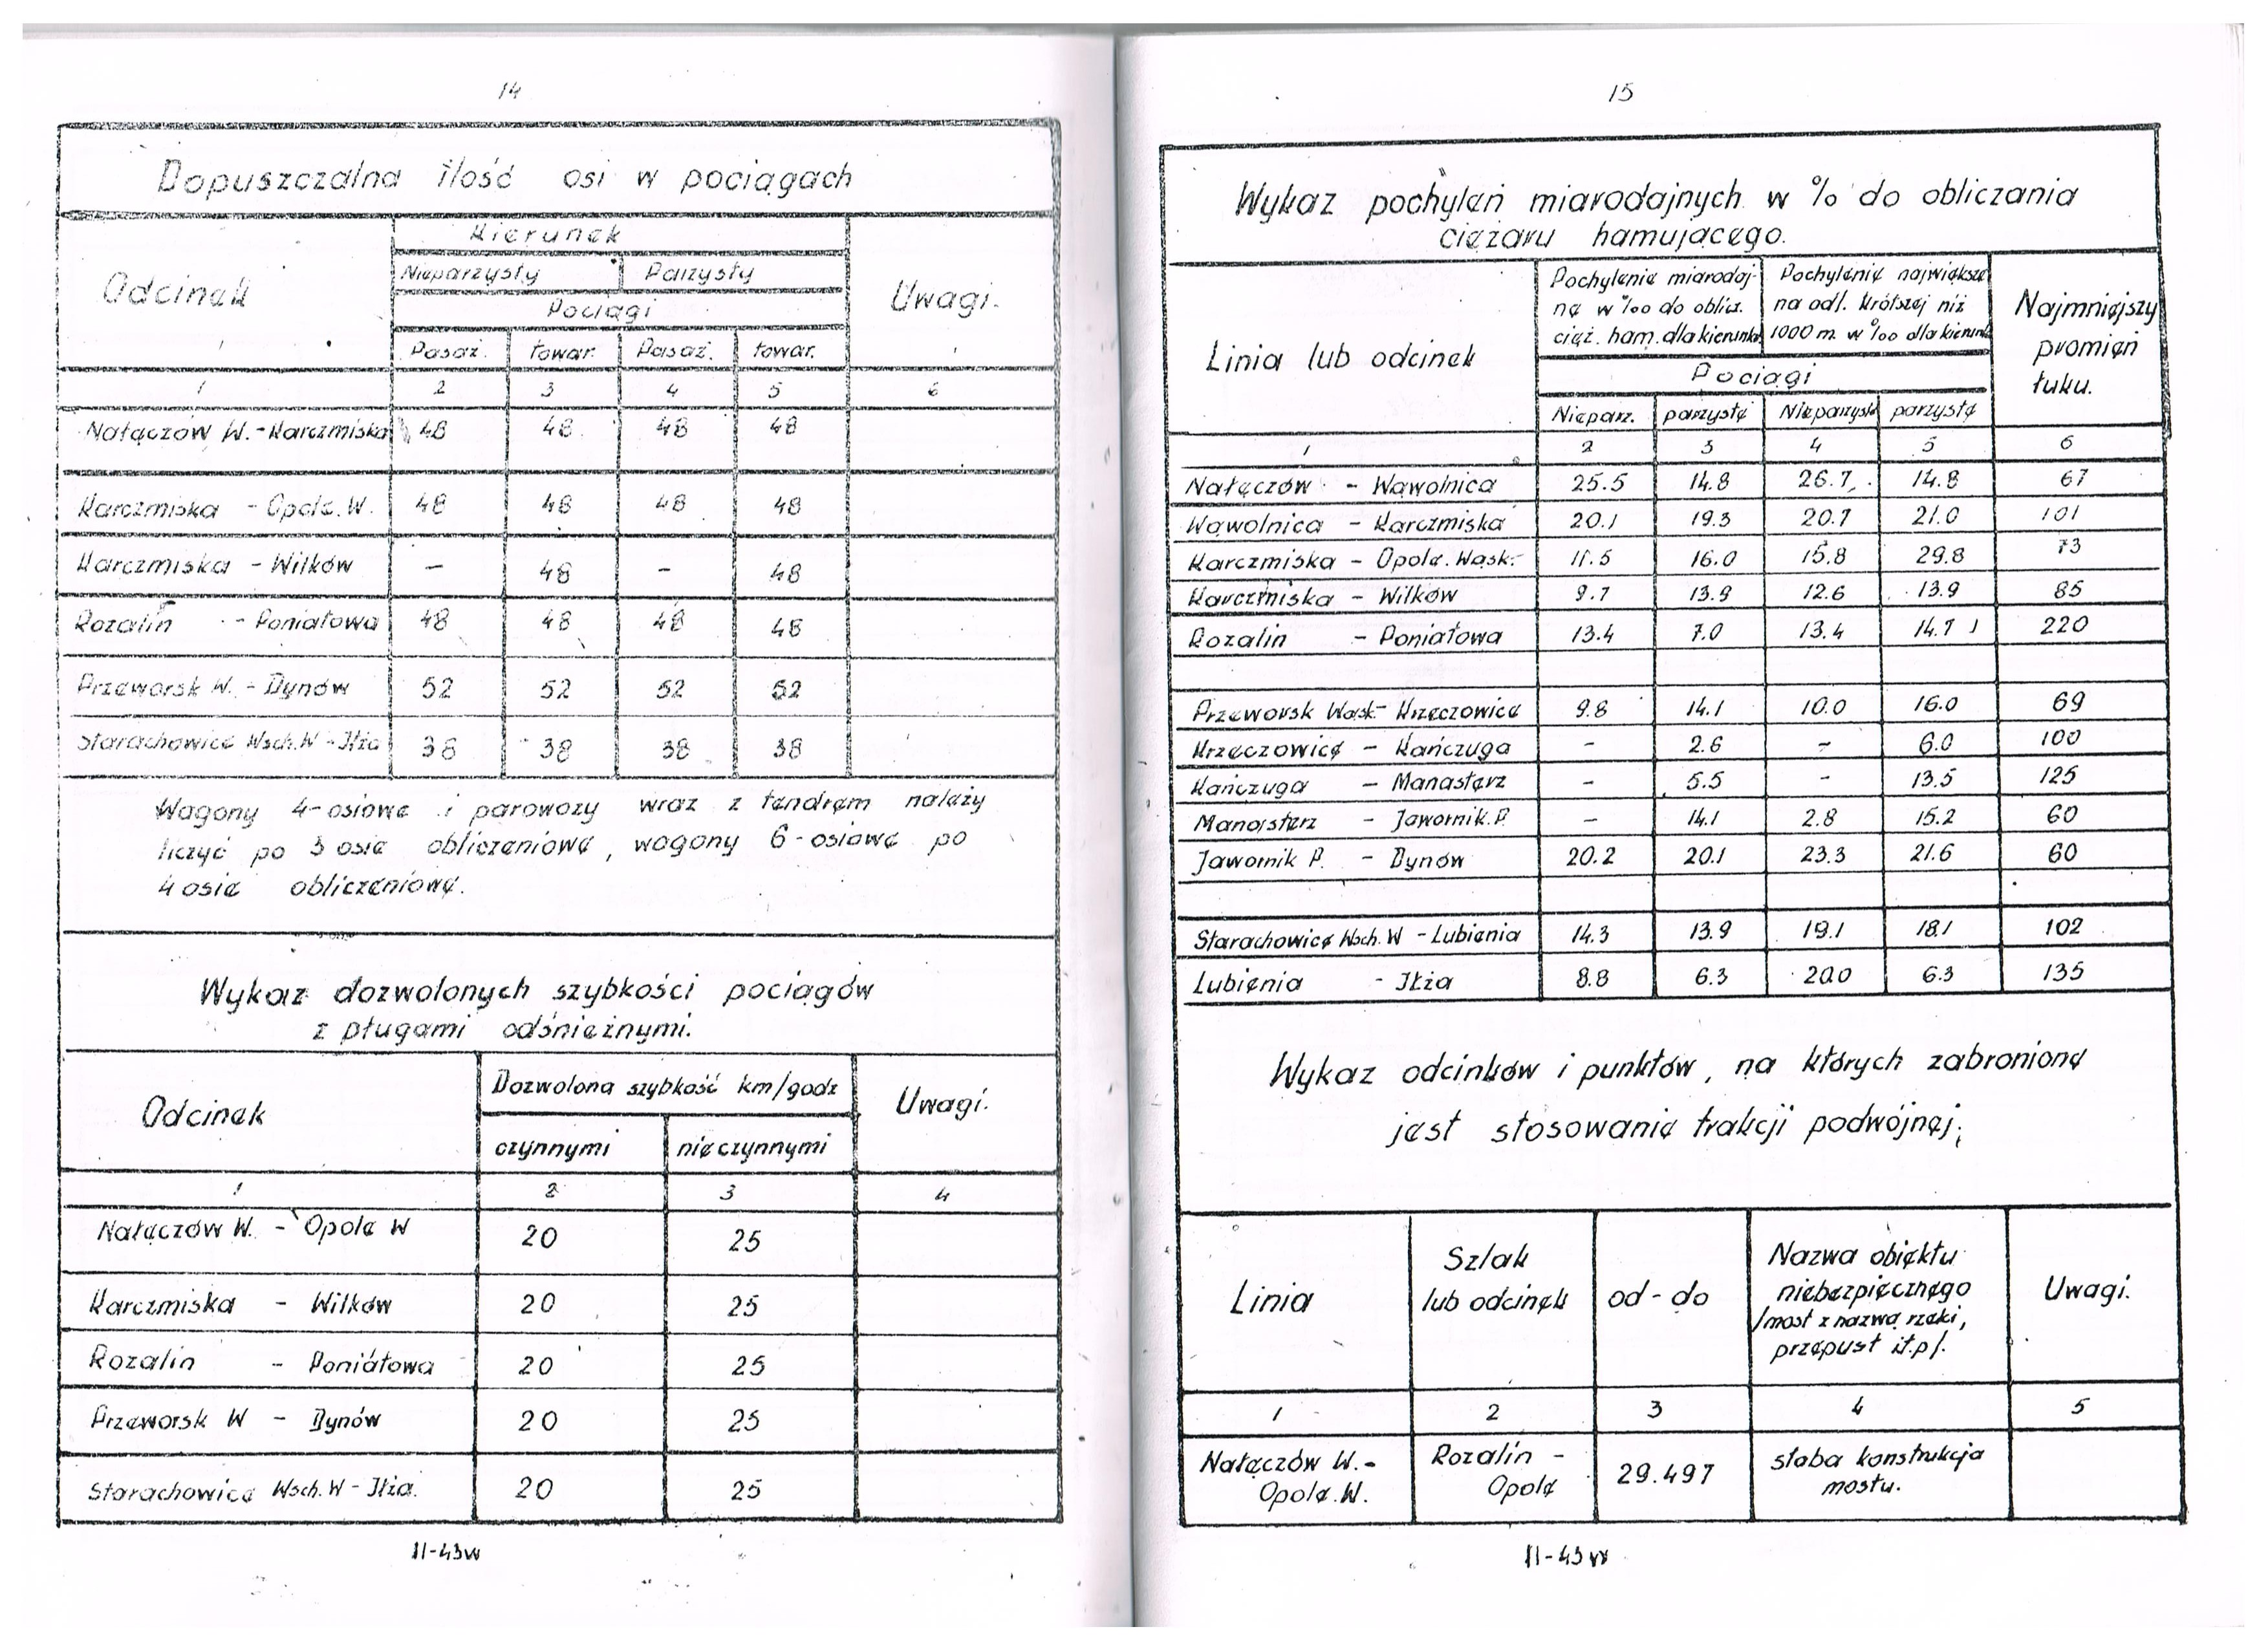 14
Dopuszczalna ilość osi w pociągach
Odcinek Kierunek Uwagi.
Nieparzysty Parzysty
Pociągi
Pasaż. towar. Pasaż. towar.
1 2 3 4 5 6
Nałęczów W. - Karczmiska 48 48 48 48
Karczmiska - Opole. W. 48 48 48 48
Karczmiska - Wilków - 48 - 48
Rozalin - Poniatowa 48 48 48 48
Przeworsk W. - Dynów 52 52 52 52
Starachowice Wsch. W - Iłża 38 38 38 38
Wagony 4-osiowe i parowozy wraz z tendrem należy
liczyć po 3 osie obliczeniowe, wagony 6-osiowe po
4 osie obliczeniowe.
Wykaz dozwolonych szybkości pociągów
z pługami odśnieżnymi.
Odcinek Dozwolona szybkość km/godz Uwagi.
czynnymi nieczynnymi
1 2 3 4
Nałęczów W. - Opole W 20 25
Karczmiska - Wilków 20 25
Rozalin - Poniatowa 20 25
Przeworsk W - Dynów 20 25
Starachowice Wsch. W - Iłża. 20 25
II-43w
15
Wykaz pochyleń miarodajnych w % do obliczania
ciężaru hamującego.
Linia lub odcinek
Pochylenie miarodaj-
ne w ‰ do oblicz.
cięż. ham. dla kierunku
Pochylenie największe
na odl. krótszej niż
1000 m. w ‰ dla kierunku
Najmniejszy
promień
łuku.
Pociągi
Nieparz. parzyste Nieparzyste parzyste
1 2 3 4 5 6
Nałęczów - Wąwolnica 25.5 14.8 26.7 14.8 67
Wąwolnica - Karczmiska 20.1 19.3 20.7 21.0 101
Karczmiska - Opole. Wąsk. 11.5 16.0 15.8 29.8 73
Karczmiska - Wilków 9.7 13.9 12.6 13.9 85
Rozalin - Poniatowa 13.4 7.0 13.4 14.7 220
Przeworsk Wąsk. - Krzeczowice 9.8 14.1 10.0 16.0 69
Krzeczowice - Kańczuga - 2.6 - 6.0 100
Kańczuga - Manasterz - 5.5 - 13.5 125
Manasterz - Jawornik. P. - 14.1 2.8 15.2 60
Jawornik P. - Dynów 20.2 20.1 23.3 21.6 60
Starachowice Wsch. W - Lubienia 14.3 13.9 19.1 18.1 102
Lubienia - Iłża 8.8 6.3 20.0 6.3 135
Wykaz odcinków i punktów, na których zabronione
jest stosowanie trakcji podwójnej;
Linia
Szlak
lub odcinek
od - do
Nazwa obiektu
niebezpiecznego
/most z nazwą rzeki,
przepust it.p/.
Uwagi.
1 2 3 4 5
Nałęczów W. -
Opole. W.
Rozalin -
Opole
29.497
słaba konstrukcja
mostu.
II-43w